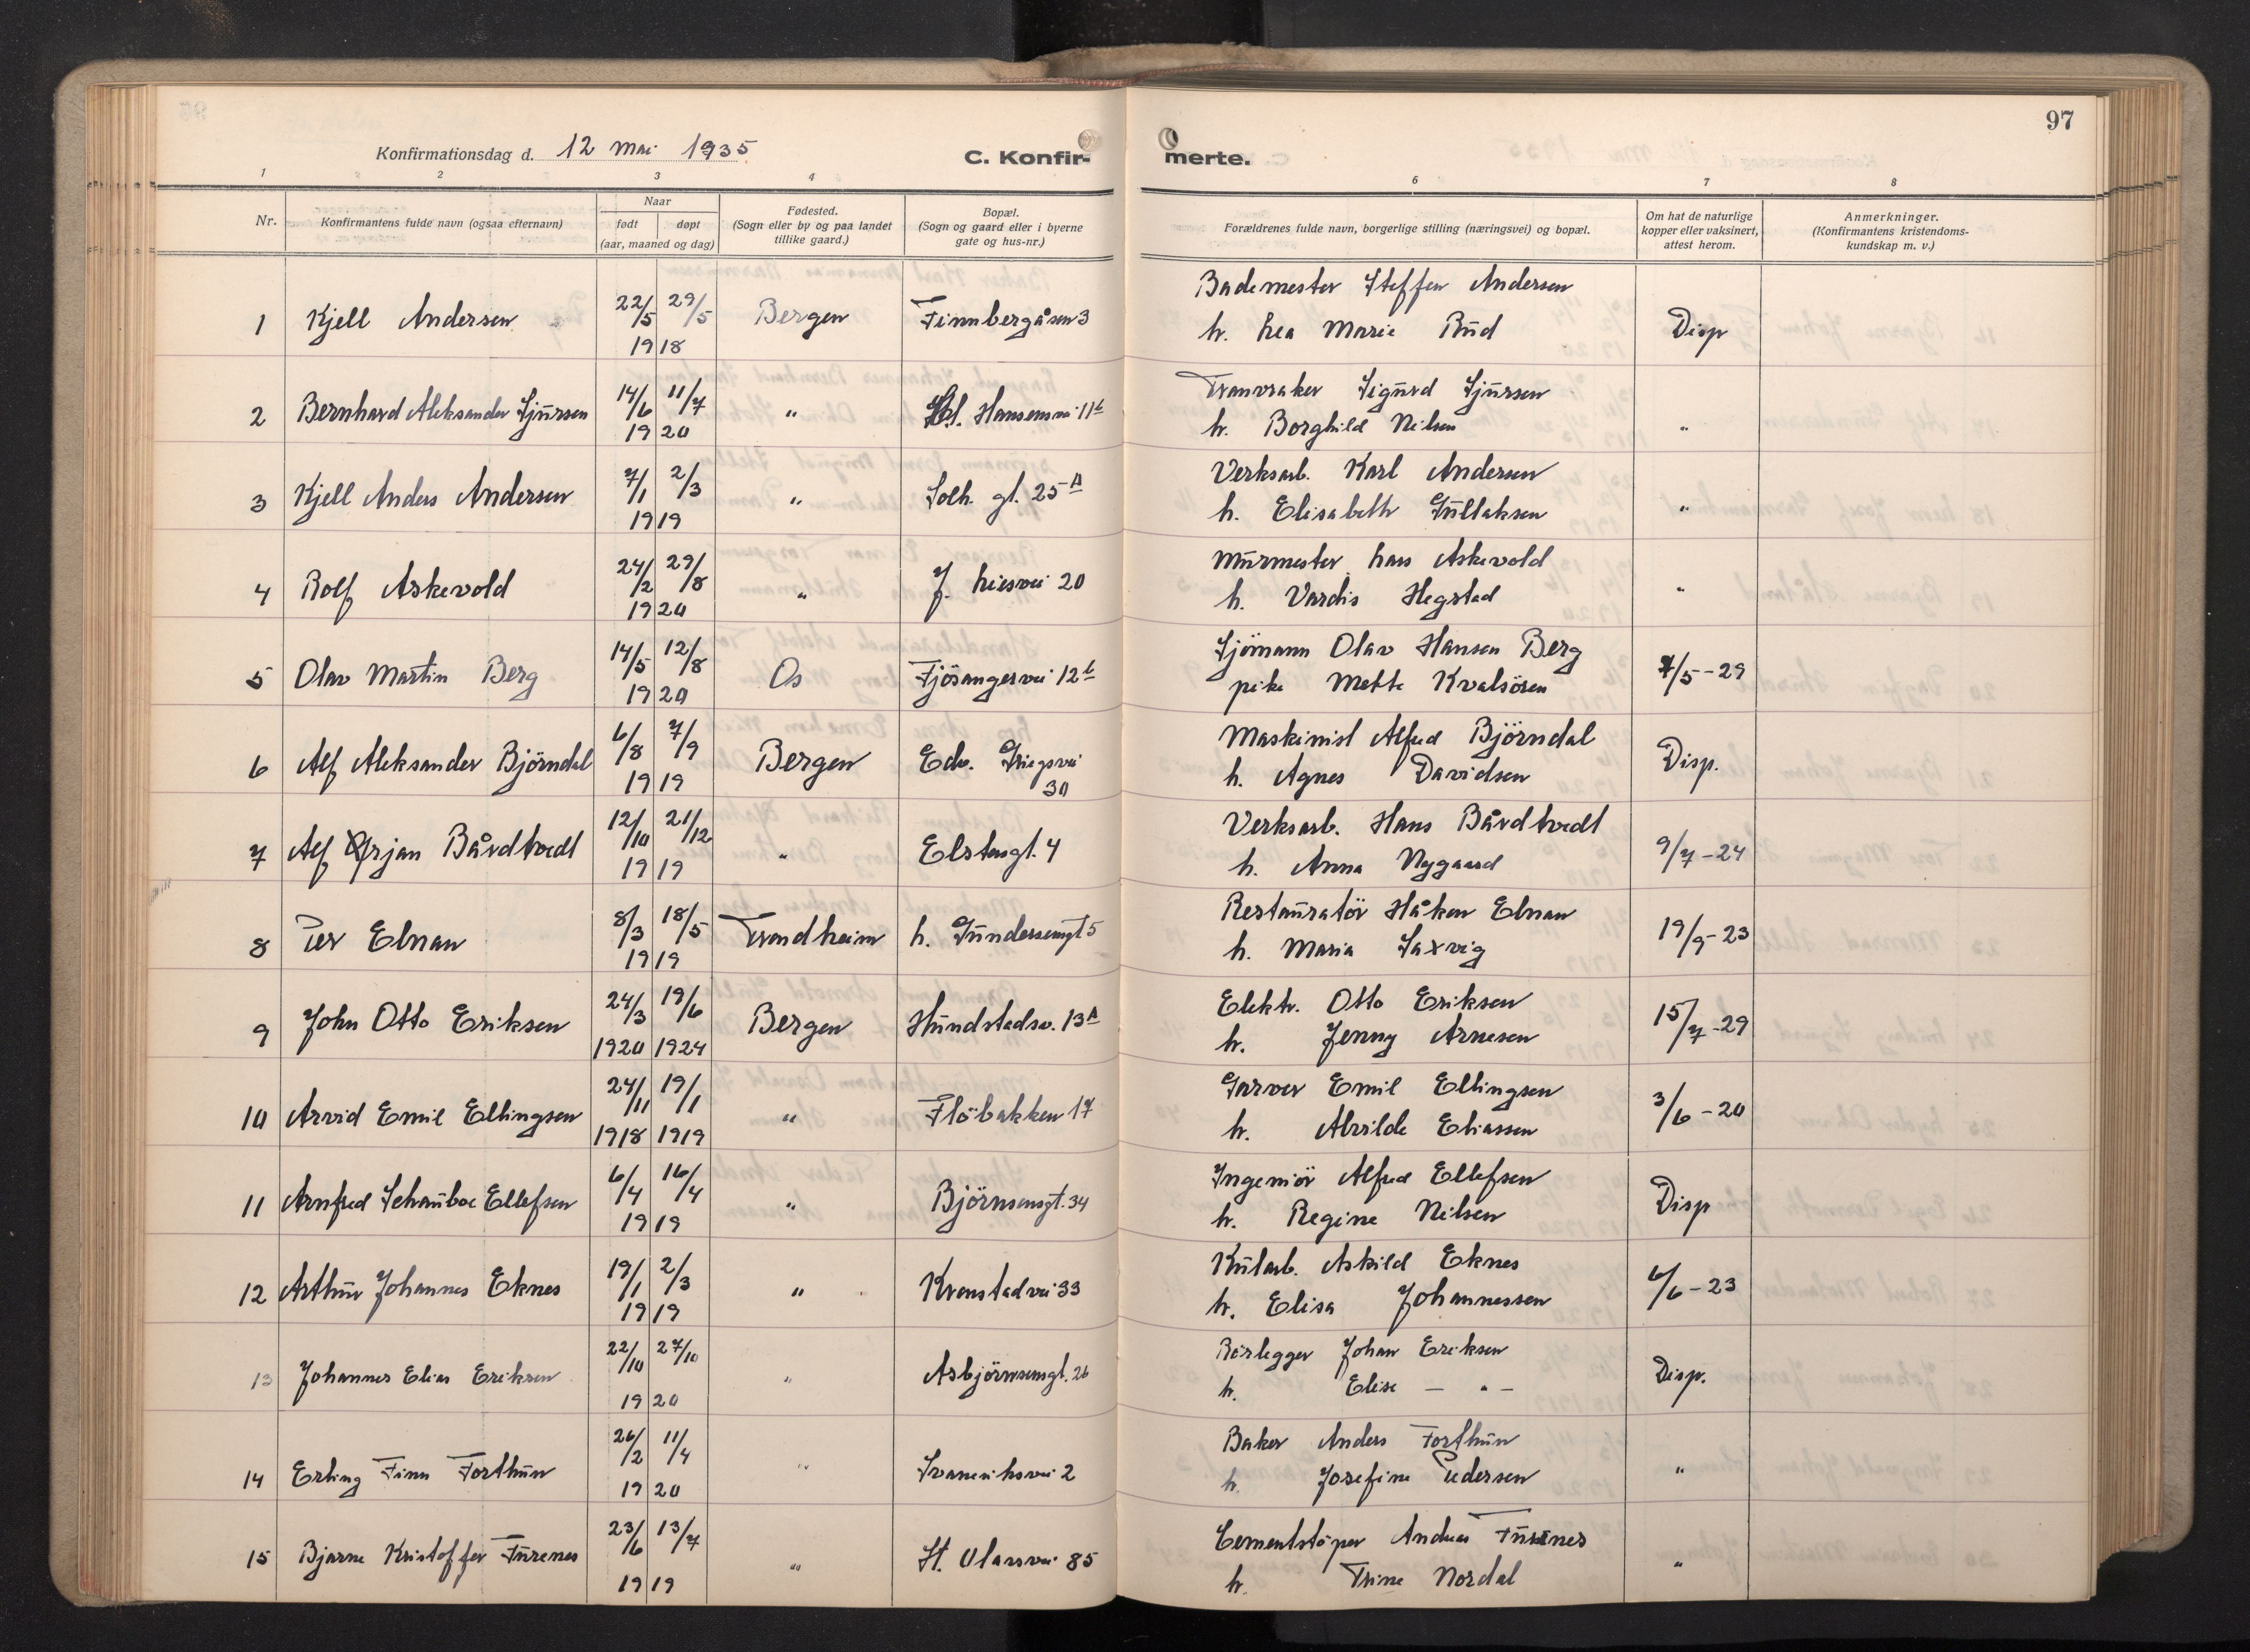 97
Konfirmationsdag d. 12 mai 1935.
C. Konfirmerte.
1 2 3 4 6 7 8
Nr.
Konfirmantens fulde navn (ogsaa efternavn)
Naar
født døpt
(aar, maaned og dag)
Fødested.
(Sogn eller by og paa landet
tillike gaard.)
Bopæl.
(Sogn og gaard eller i byerne
gate og hus-nr.)
Forældrenes fulde navn, borgerlige stilling (næringsvei) og bopæl.
Om hat de naturlige
kopper eller vaksinert,
attest herom.
Anmerkninger.
(Konfirmantens kristendoms-
kundskap m. v.)
1 Kjell Andersen 22/5 29/5 1918 Bergen Finnbergåsen 3 Bademester Steffen Andersen
h. Lea Marie Rud Disp
2 Bernhard Aleksander Sjursen 14/6 11/7 1920 " Hansensvei 11b Tranvraker Sigurd Sjursen
h. Borghild Nilsen "
3 Kjell Anders Andersen 7/1 2/3 1919 " Solh. gt. 25A Verksarb. Karl Andersen
h. Elisabeth Gullaksen "
4 Rolf Askevold 24/2 29/8 1920 " J. Liesvei 20 Murmester Lars Askevold
h. Vardis Hegstad "
5 Olav Martin Berg 14/5 12/8 1920 Os Fjösangervei 12b Sjömann Olav Hansen Berg
pike Mette Kvalsören 7/5-29
6 Alf Aleksander Björndal 6/8 7/9 1919 Bergen Edv. Griegsvei
30 Maskinist Alfred Björndal
h. Agnes Davidsen Disp.
7 Alf Ørjan Båvdtvedt 12/10 21/12 1919 " Elstersgt. 4 Verksarb. Hans Båvdtvedt
h. Anna Nygaard 9/7-24
8 Per Elnan 8/3 18/5 1919 Trondheim L. Gundersensgt 5 Restauratör Håkon Elnan
h. Maria Saxvig 19/9-23
9 John Otto Eriksen 24/3 19/6 1920 1924 Bergen Hunstadsv. 13A Elektr. Otto Eriksen
h. Jenny Arnesen 15/7-29
10 Arvid Emil Ellingsen 24/11 19/1 1918 1919 " Flöbakken 17 Garver Emil Ellingsen
h. Alvilde Eliassen 3/6-20
11 Arnfred Schauboe Ellefsen 6/4 16/4 1919 " Björnsonsgt. 34 Ingeniör Alfred Ellefsen
h. Regine Nilsen Disp
12 Arthur Johannes Eknes 19/1 2/3 1919 " Kronstadvei 33 Kularb. Askild Eknes
h. Elisa Johannessen 6/6-23
13 Johannes Elias Eriksen 22/10 27/10 1920 " Asbjörnsensgt. 26 Rörlegger Johan Eriksen
h. Elise — " — Disp.
14 Erling Finn Forthun 26/2 11/4 1920 " Svaneviksvei 2 Baker Anders Forthun
h Josefine Pedersen "
15 Bjarne Kristoffer Furenes 23/6 13/7 1919 " St. Olavsvei 85 Cementstöper Andreas Furenes
h. Trine Nordal "